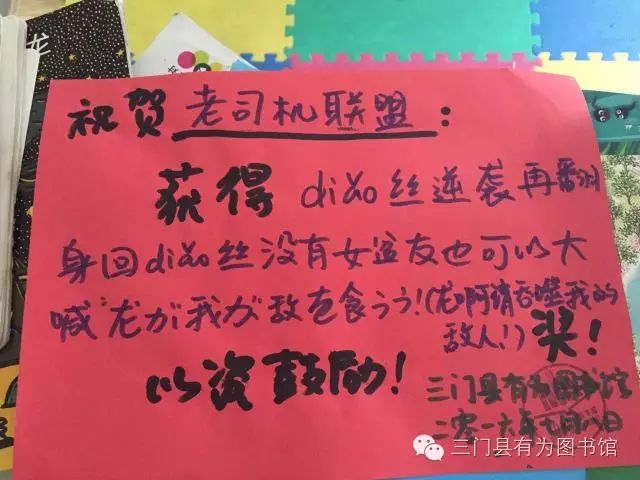 龙
祝贺 老司机联盟：
获得 diǎo丝逆袭再翻
身回diǎo丝没有女盆友也可以大
喊"龙が我が敌を食うう!(龙啊请吞噬我的
敌人!) 奖!
以资鼓励!
三门县有为图书馆
二零一六年七月八日
三门县有为图书馆